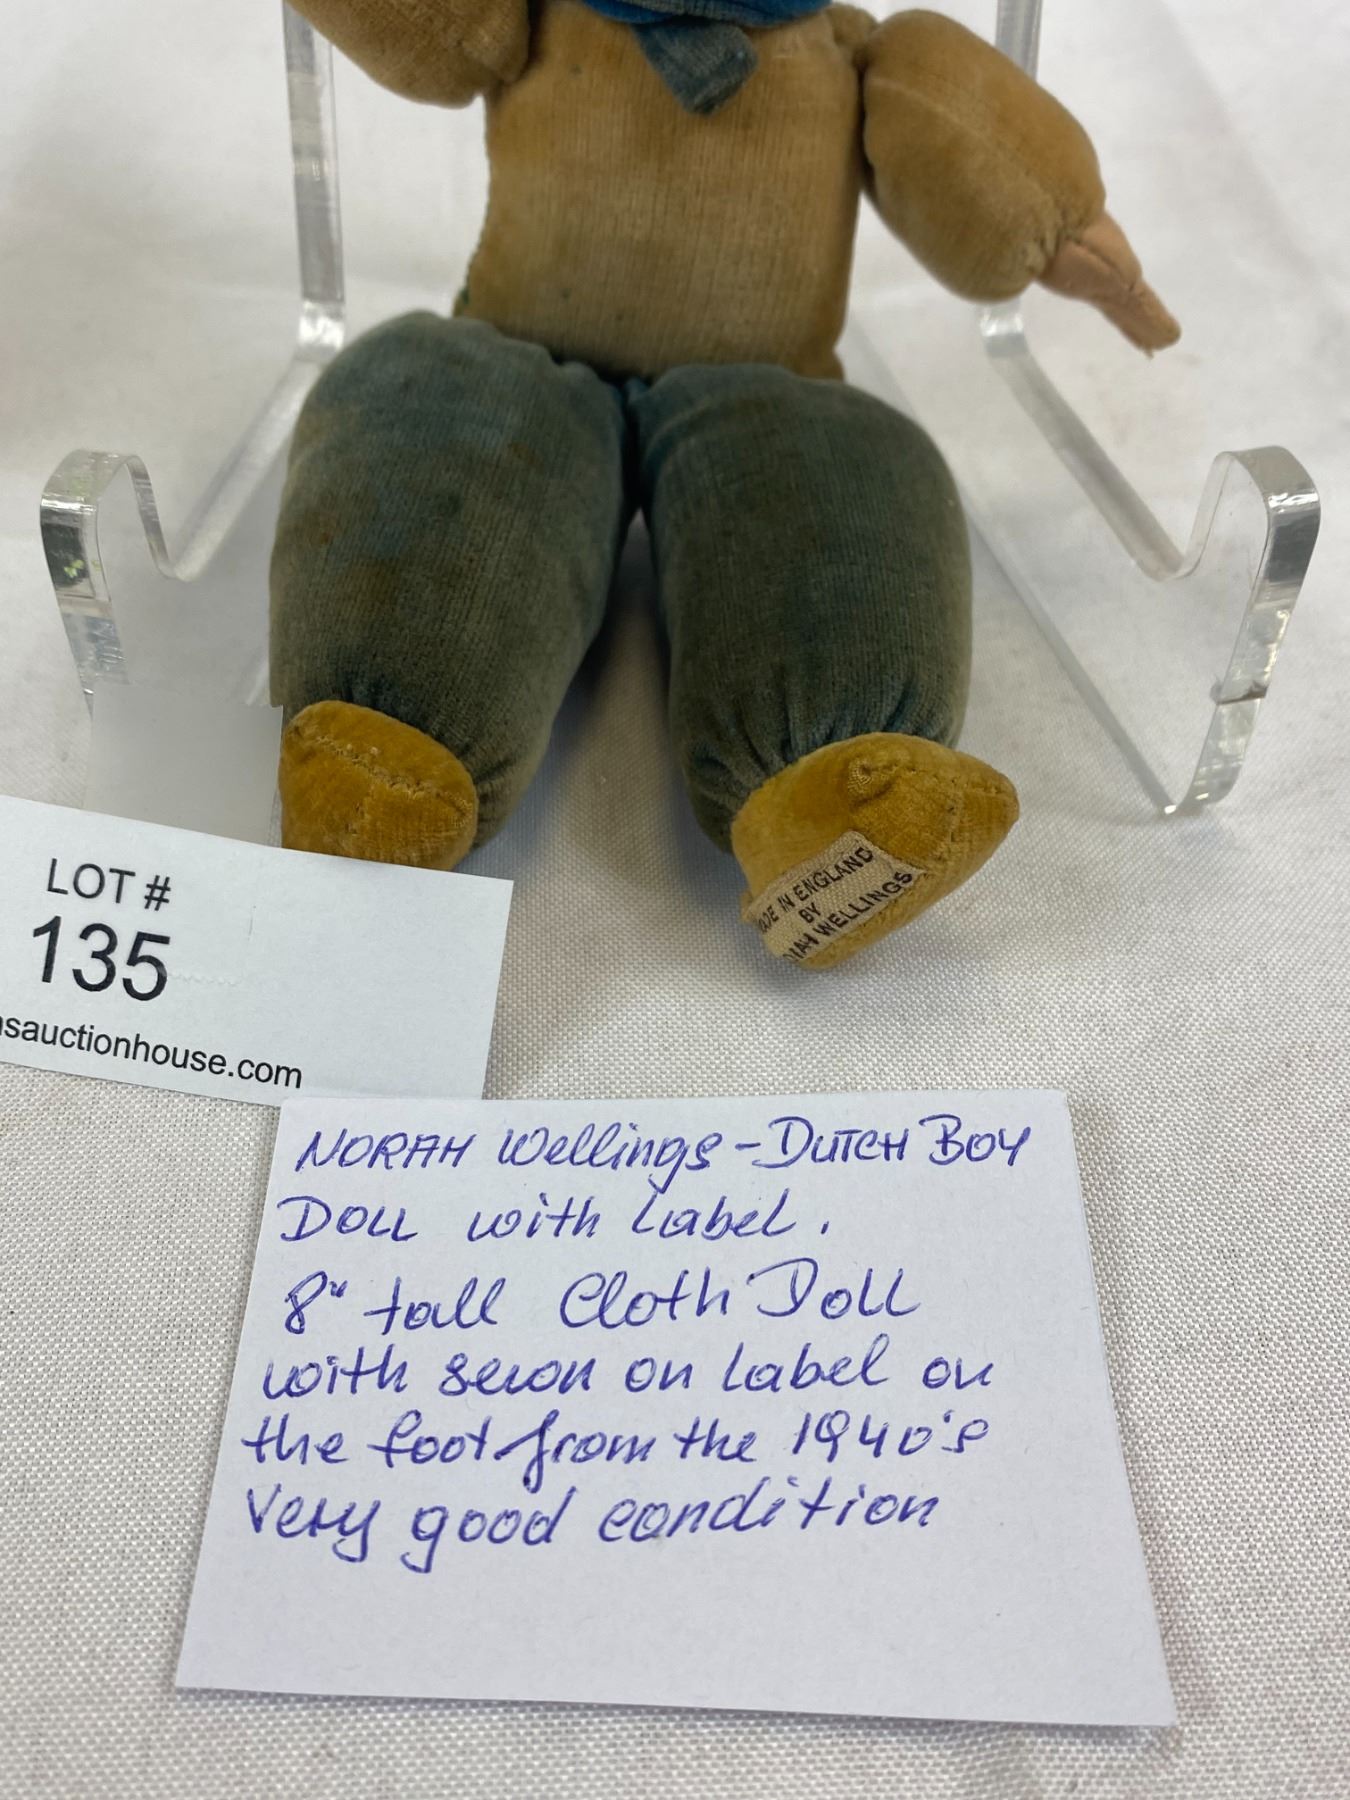 MADE IN ENGLAND
BY
WELLINGS
LOT #
135
sauctionhouse.com
NORAH Wellings - DUTCH BOY
DOLL with Label.
8" tall Cloth Doll
with sewon on Label on
the foot from the 1940's
Very good condition